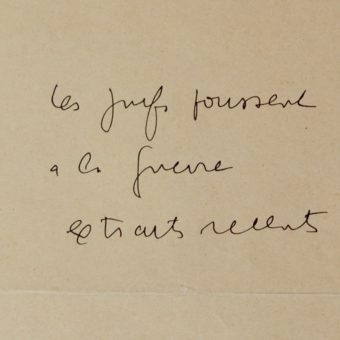 les juifs poussent
a la guerre
extraits recents